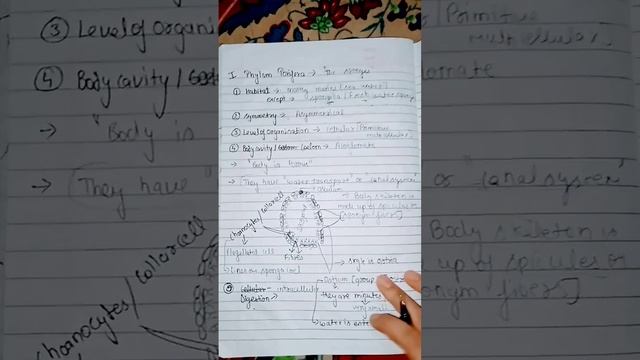 I. Phylum Porifera → "The sponges
① Habitat → mostly marine (sea water)
except → spongilla (Fresh water sponge
② symmetry → Asymmetrical
③ Level of organisation → cellular (Primitive
multicellular)
④ Body cavity / Coelom → Acoelomate
→ "Body is
→ They have "water transport" or "canal system"
osculum
Body skeleton is
made up of spicules or
spongin fibres]
Choanocytes / collar cell
Flagellated cells
Fibres
→ single is ostia
Lines our spongocoel
⑤ Digestion → intracellular
Ostium [group
they are minutes
very small
→ water is enter
③ Level of organi
④ Body cavity /
→ "Body is
→ They have "
Choanocytes / collar cell
Primitive
multicellular
omate
or "canal system"
Body skeleton is
up of spicules or
ongin fibres]